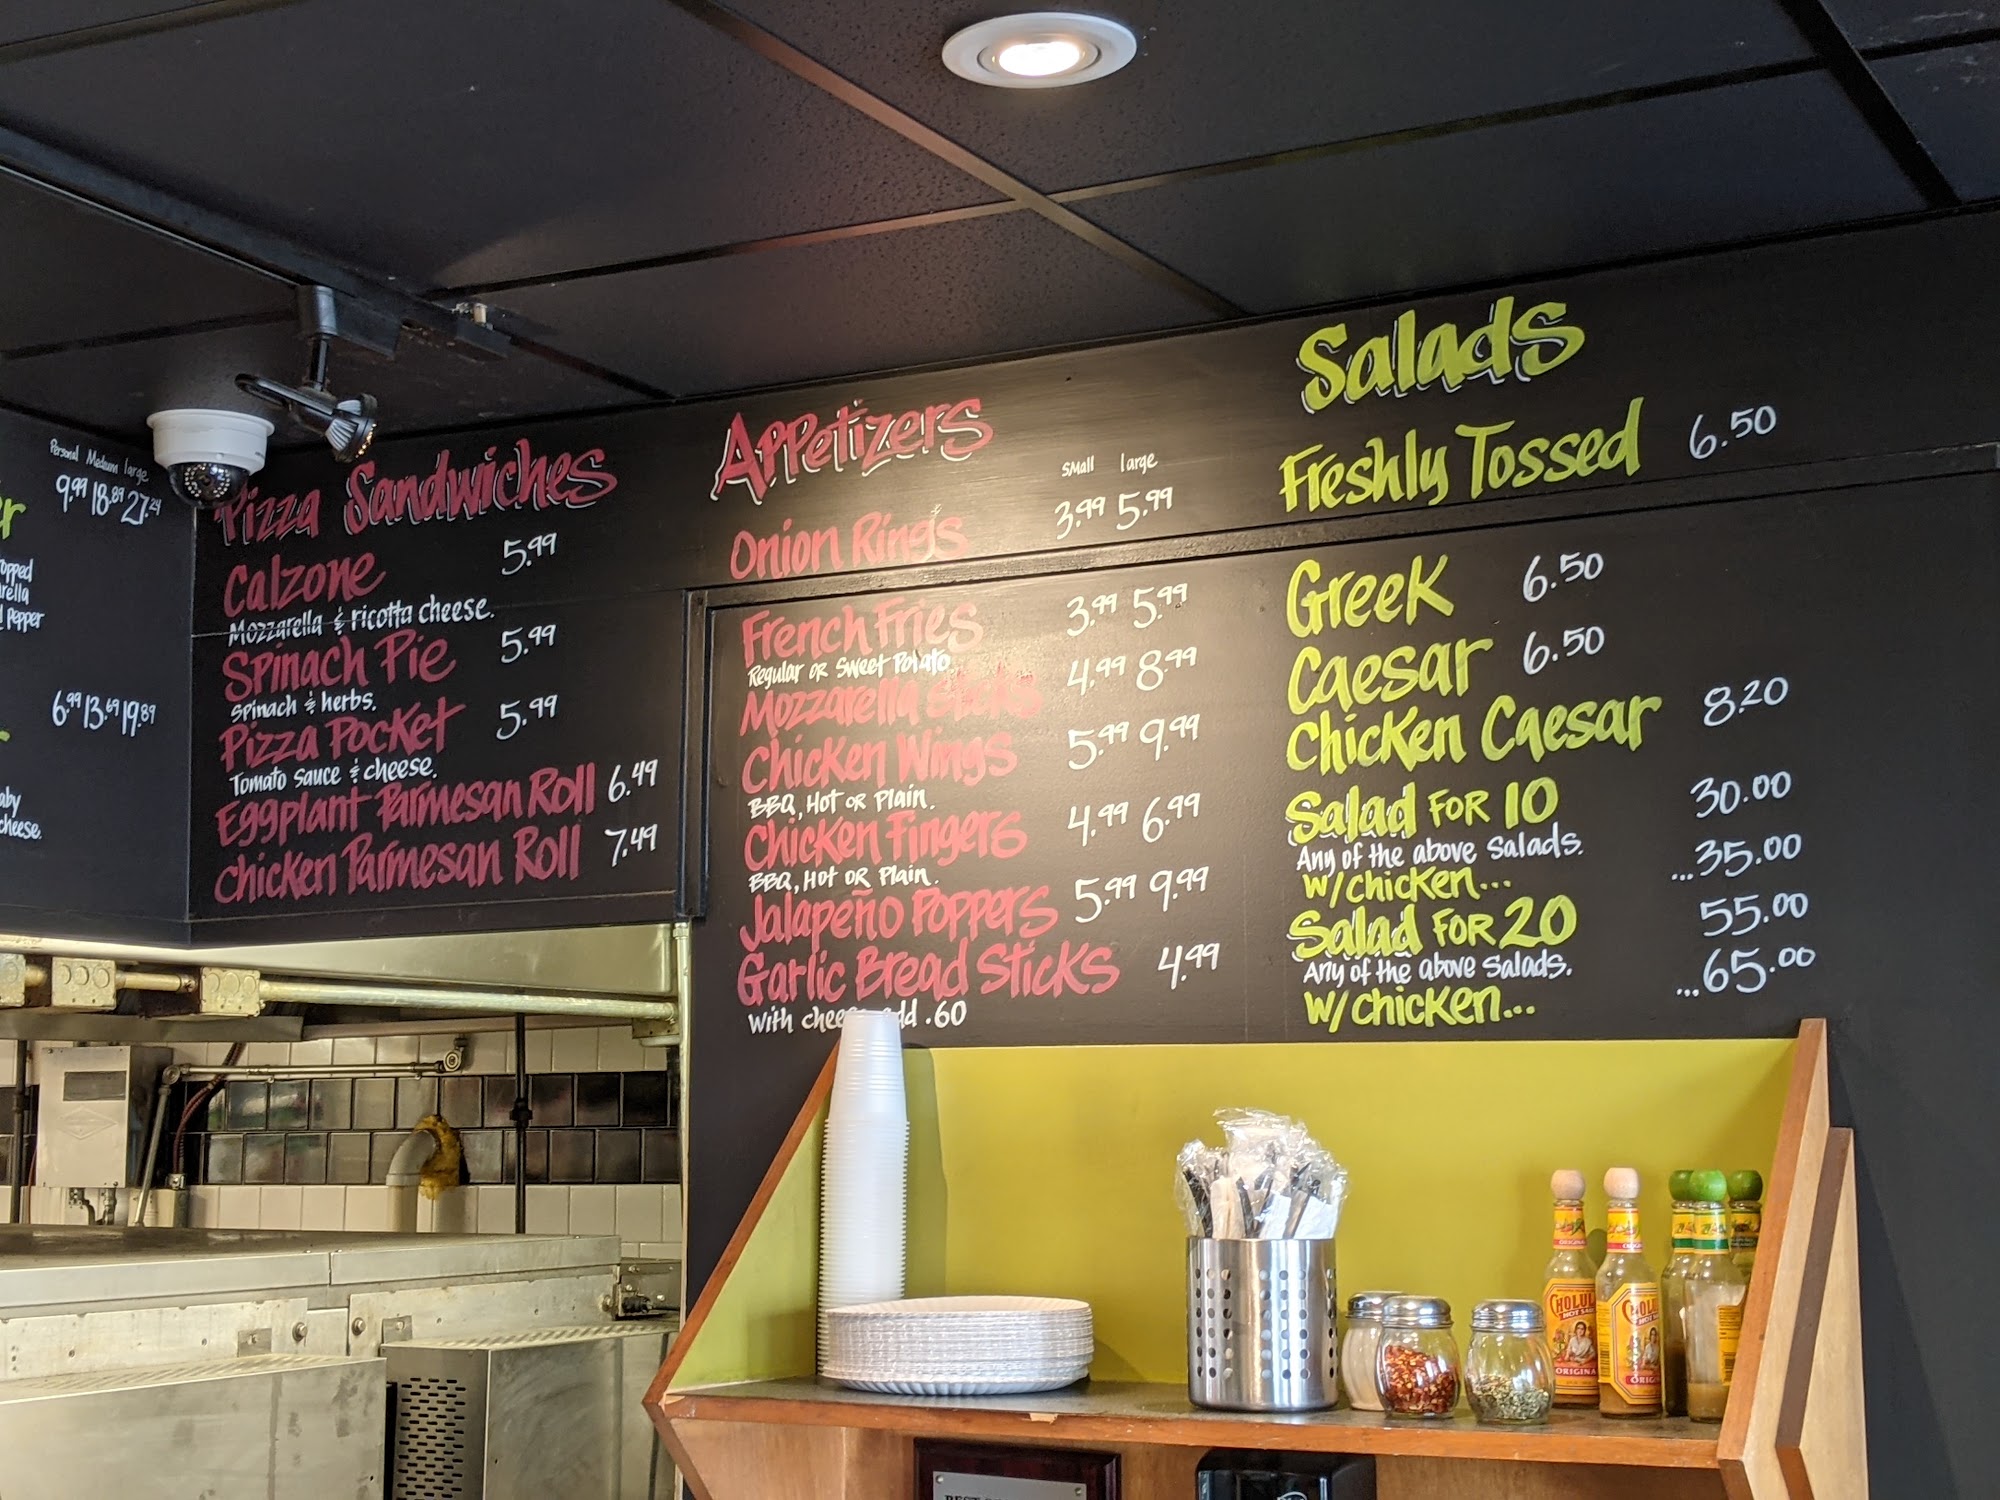 Personal Medium large
9.99 18.89 27.24
opped
rella
Pepper
6.99 13.69 19.89
aby
cheese.
Pizza Sandwiches
Calzone 5.99
Mozzarella & ricotta cheese.
Spinach Pie 5.99
Spinach & herbs.
Pizza Pocket 5.99
Tomato sauce & cheese.
Eggplant Parmesan Roll 6.49
Chicken Parmesan Roll 7.49
Appetizers
small large
Onion Rings 3.99 5.99
French Fries 3.99 5.99
Regular or Sweet Potato
Mozzarella Sticks 4.99 8.99
Chicken Wings 5.99 9.99
BBQ, Hot or Plain.
Chicken Fingers 4.99 6.99
BBQ, Hot or Plain.
Jalapeño Poppers 5.99 9.99
Garlic Bread Sticks 4.99
With cheese add .60
Salads
Freshly Tossed 6.50
Greek 6.50
Caesar 6.50
Chicken Caesar 8.20
Salad for 10 30.00
Any of the above Salads.
w/chicken... ...35.00
Salad for 20 55.00
Any of the above Salads.
w/chicken... ...65.00
CHOLULA
HOT SAUCE
ORIGINAL
CHOLULA
HOT
ORIGINAL
BEST